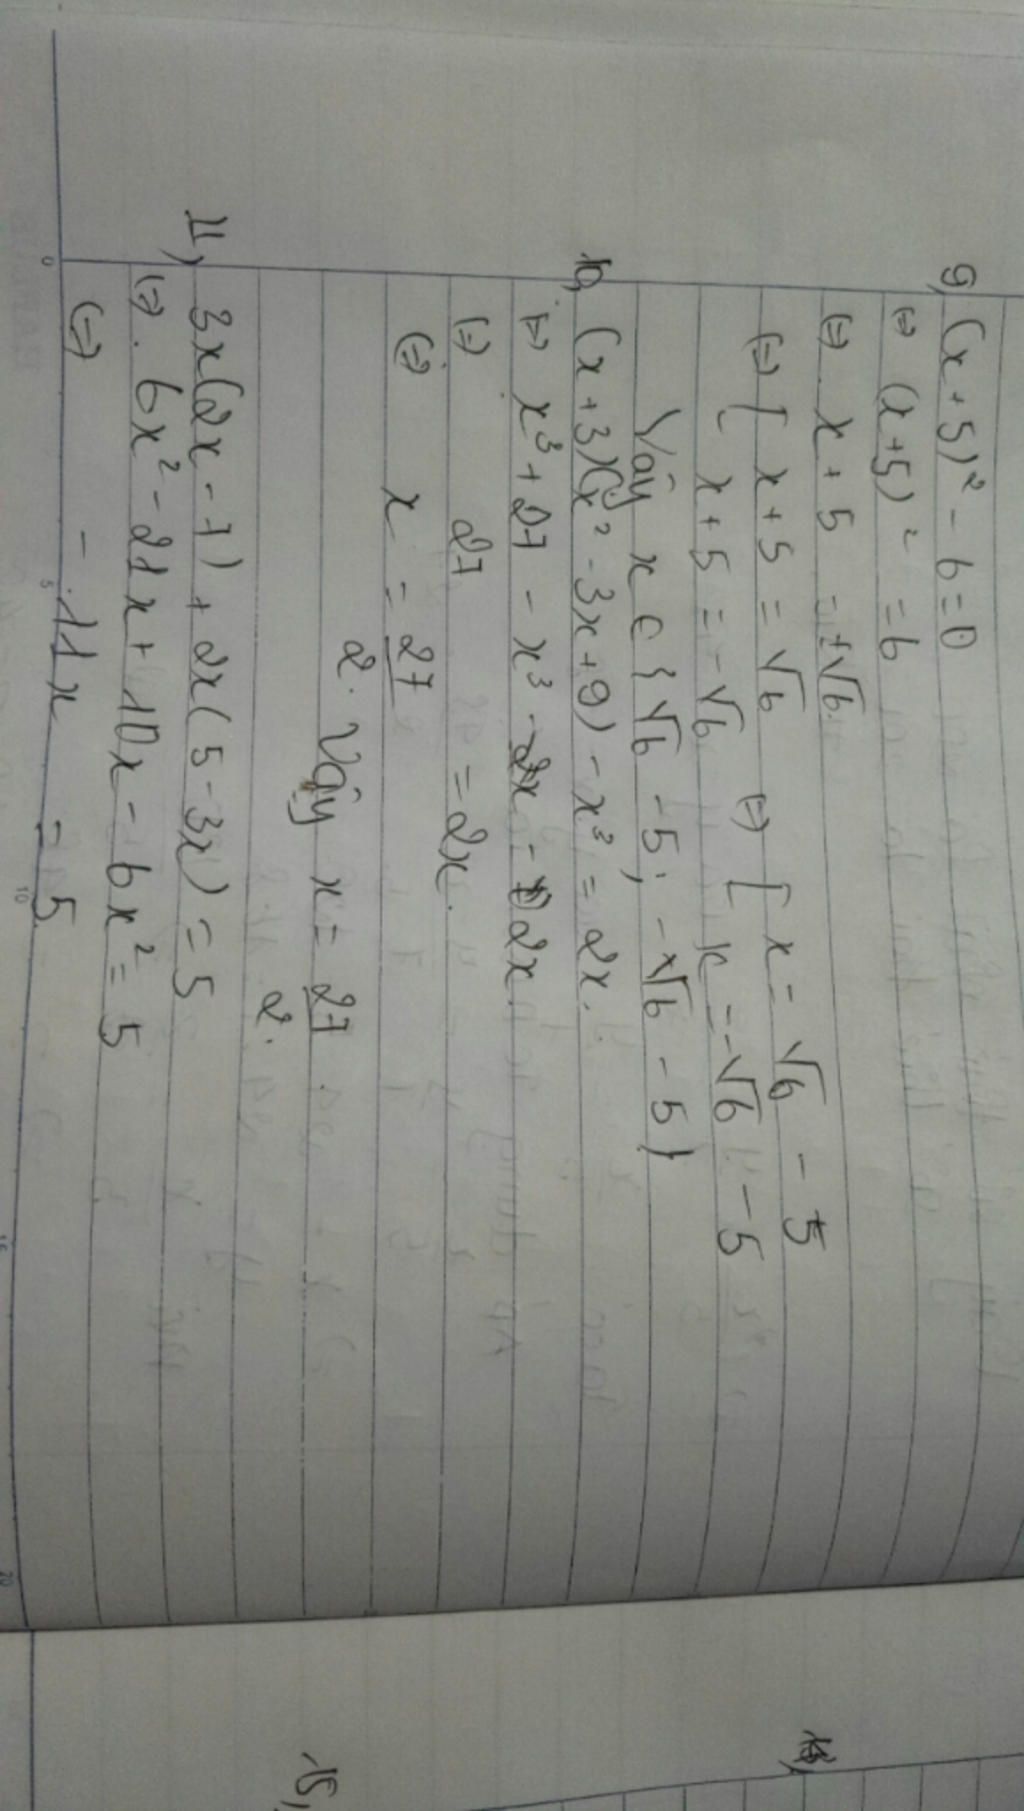 9, (x+5)² - 6 = 0
(=) (x+5)² = 6
(=) x + 5 = ±√6.
(=) [ x+5 = √6 (=) [ x = √6 - 5
x+5 = -√6 x = -√6 - 5
Vậy x ∈ {√6 - 5; -√6 - 5}
10, (x+3)(x² - 3x + 9) - x³ = 2x.
(=) x³ + 27 - x³ = 2x
(=) 27 = 2x.
(=) x = 27/2. Vậy x = 27/2.
11, 3x(2x - 7) + 2x(5 - 3x) = 5
(=). 6x² - 21x + 10x - 6x² = 5
(=) - 11x = 5.
15,
0
5
10
15
20